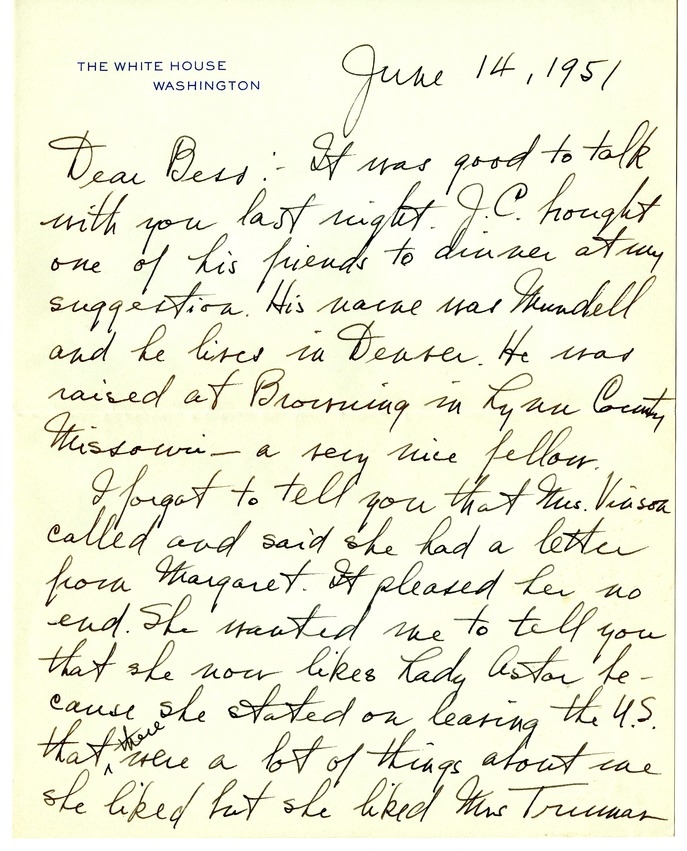 THE WHITE HOUSE
WASHINGTON
June 14, 1951
Dear Bess:- It was good to talk
with you last night. J.C. brought
one of his friends to dinner at my
suggestion. His name was Mundell
and he lives in Denver. He was
raised at Browning in Lynn County
Missouri— a very nice fellow.
I forgot to tell you that Mrs. Vinson
called and said she had a letter
from Margaret. It pleased her no
end. She wanted me to tell you
that she now likes Lady Astor be-
cause she stated on leaving the U.S.
that there were a lot of things about me
she liked but she liked Mrs Truman